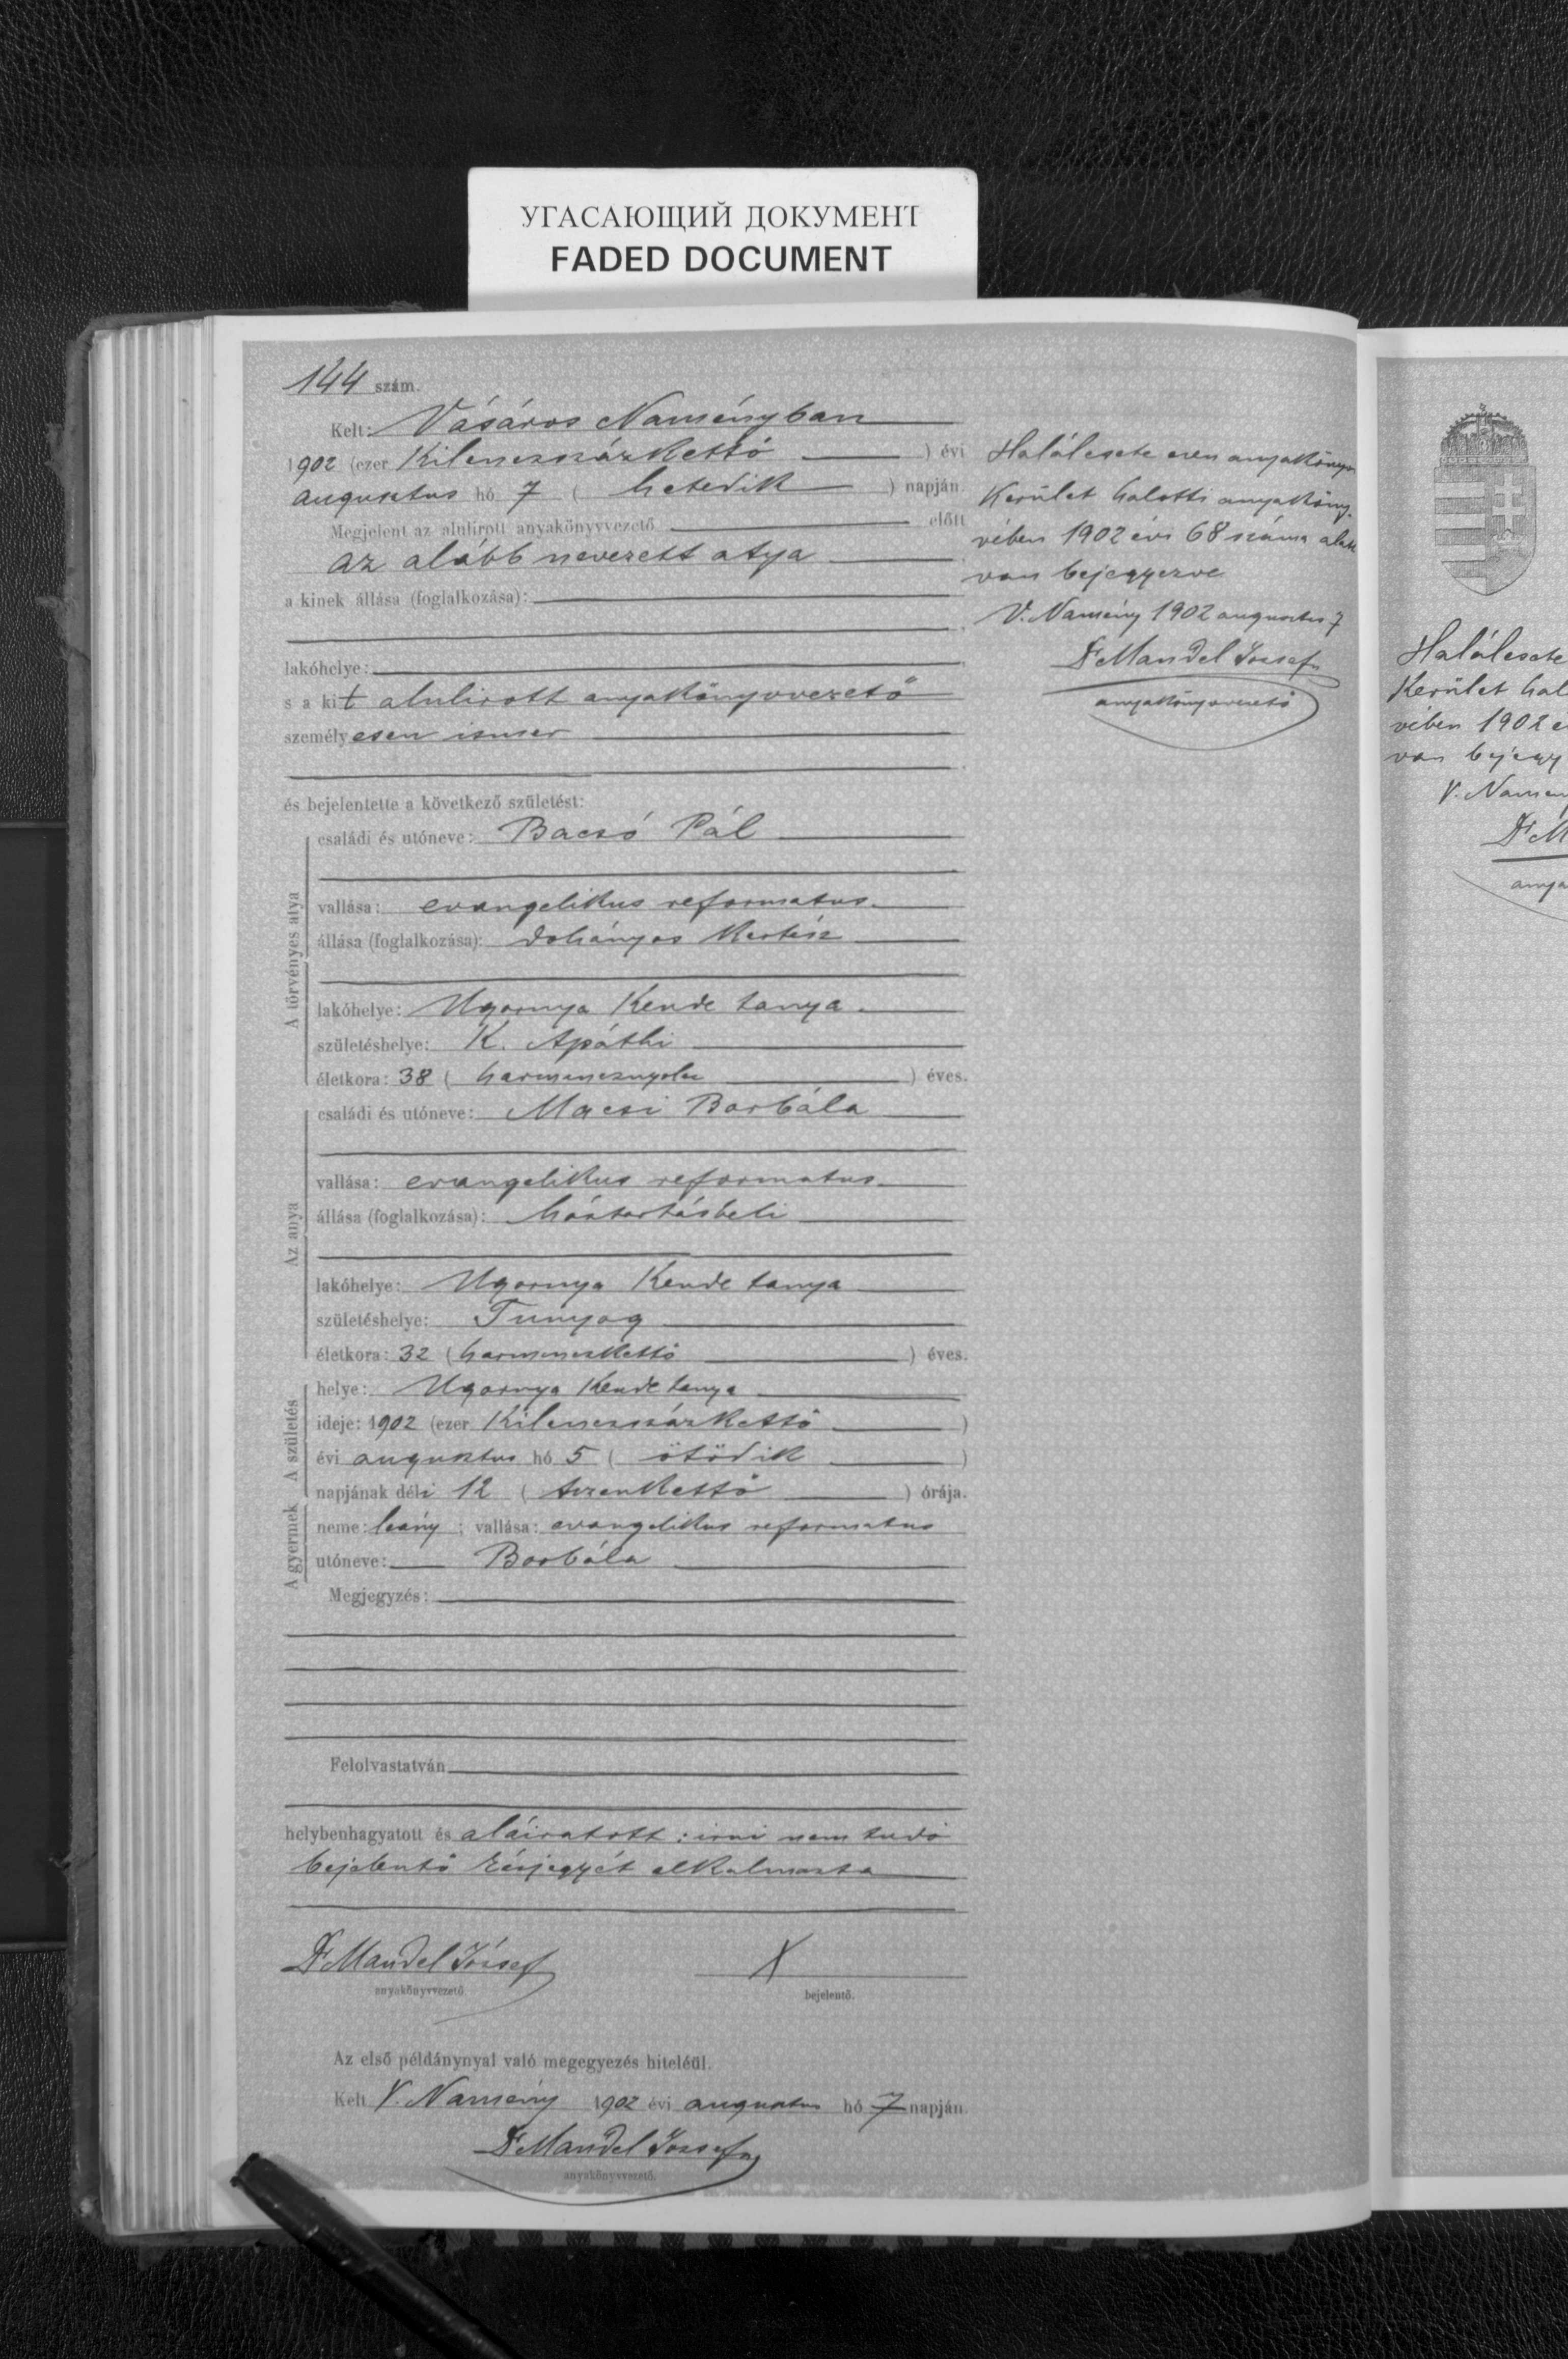 УГАСАЮЩИЙ ДОКУМЕНТ
FADED DOCUMENT
144 szám.
Kelt: Vásáros Naményban
1902 (ezer Kilenczszázkettő ) évi
augusztus hó 7 ( hetedik ) napján
Megjelent az alulirott anyakönyvvezető előtt
az alább nevezett atya
a kinek állása (foglalkozása):
lakóhelye:
s a kit alulirott anyakönyvvezető
személyesen ismer
és bejelentette a következő születést:
A törvényes atya
családi és utóneve: Bacsó Pál
vallása: evangelikus reformatus
állása (foglalkozása): dohányos kertész
lakóhelye: Ugornya Kende tanya
születéshelye: K. Apáthi
életkora: 38 ( harmincznyolcz ) éves.
Az anya
családi és utóneve: Macsi Borbála
vallása: evangelikus reformatus
állása (foglalkozása): háztartásbeli
lakóhelye: Ugornya Kende tanya
születéshelye: Tunyog
életkora: 32 ( harminczkettő ) éves.
A születés
helye: Ugornya Kende tanya
ideje: 1902 (ezer Kilenczszázkettő )
évi augusztus hó 5 ( ötödik )
napjának déli 12 ( tizenkettő ) órája.
A gyermek
neme: leány ; vallása: evangelikus reformatus
utóneve: Borbála
Megjegyzés:
Felolvastatván
helybenhagyatott és aláiratott ; irni nem tudó
bejelentő kézjegyét alkalmazta
Dr Mandel József
anyakönyvvezető
X
bejelentő.
Az első példánynyal való megegyezés hiteléül.
Kelt V. Namény 1902 évi augusztus hó 7 napján
Dr Mandel József
anyakönyvvezető.
Halálesete ezen anyakönyvi
Kerület halotti anyaköny-
vében 1902 évi 68 száma alatt
van bejegyezve
V. Namény 1902 augusztus 7
Dr Mandel József
anyakönyvvezető
Halálesete
Kerület hal
vében 1902 é
van bejegy
V. Namén
Dr M
anya